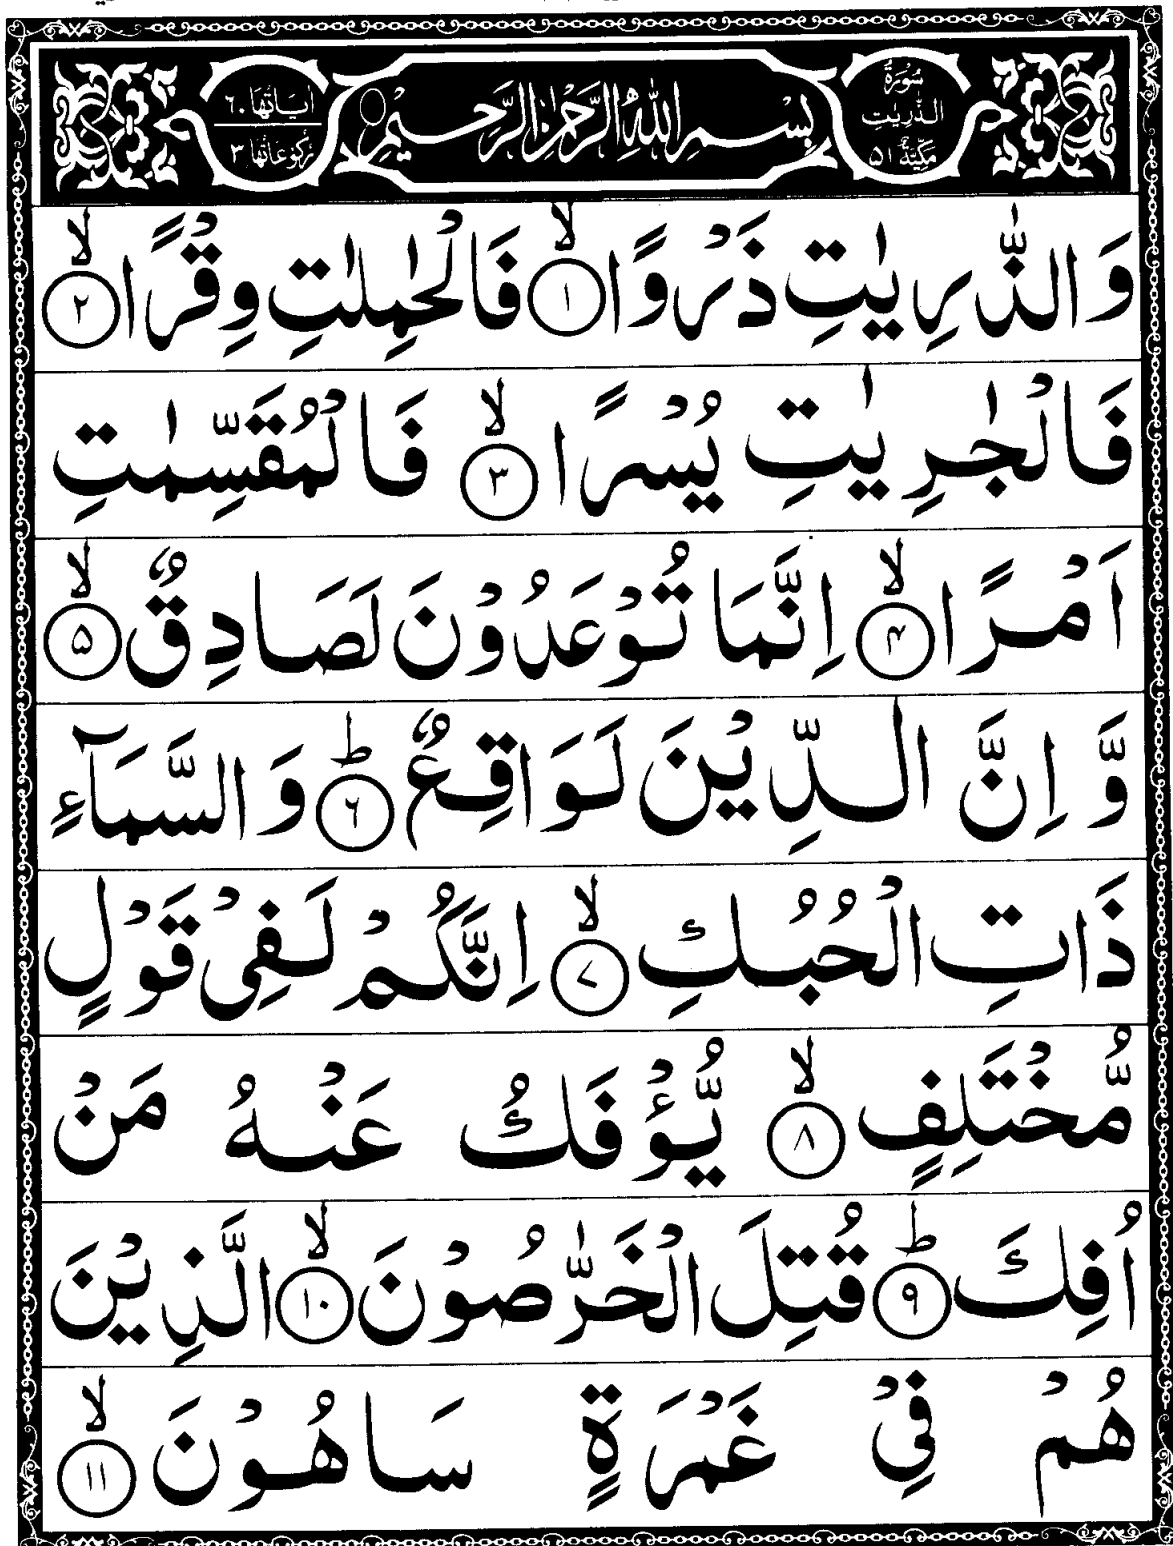 سُوْرَةُ الذّٰرِيٰتِ مَكِّيَّةٌ ٥١
بِسْمِ اللّٰهِ الرَّحْمٰنِ الرَّحِيْمِ
اٰيَاتُهَا ٦٠
رُكُوْعَاتُهَا ٣
وَالذّٰرِيٰتِ ذَرْوًا ۙ‏﴿۱﴾ فَالْحٰمِلٰتِ وِقْرًا ۙ‏﴿۲﴾
فَالْجٰرِيٰتِ يُسْرًا ۙ‏﴿۳﴾ فَالْمُقَسِّمٰتِ
اَمْرًا ۙ‏﴿۴﴾ اِنَّمَا تُوْعَدُوْنَ لَصَادِقٌ ۙ‏﴿۵﴾
وَّ اِنَّ الدِّيْنَ لَوَاقِعٌ ؕ‏﴿۶﴾ وَالسَّمَآءِ
ذَاتِ الْحُبُكِ ۙ‏﴿۷﴾ اِنَّكُمْ لَفِىْ قَوْلٍ
مُّخْتَلِفٍ ۙ‏﴿۸﴾ يُّؤْفَكُ عَنْهُ مَنْ
اُفِكَ ؕ‏﴿۹﴾ قُتِلَ الْخَرّٰصُوْنَ ۙ‏﴿۱۰﴾ الَّذِيْنَ
هُمْ فِىْ غَمْرَةٍ سَاهُوْنَ ۙ‏﴿۱۱﴾